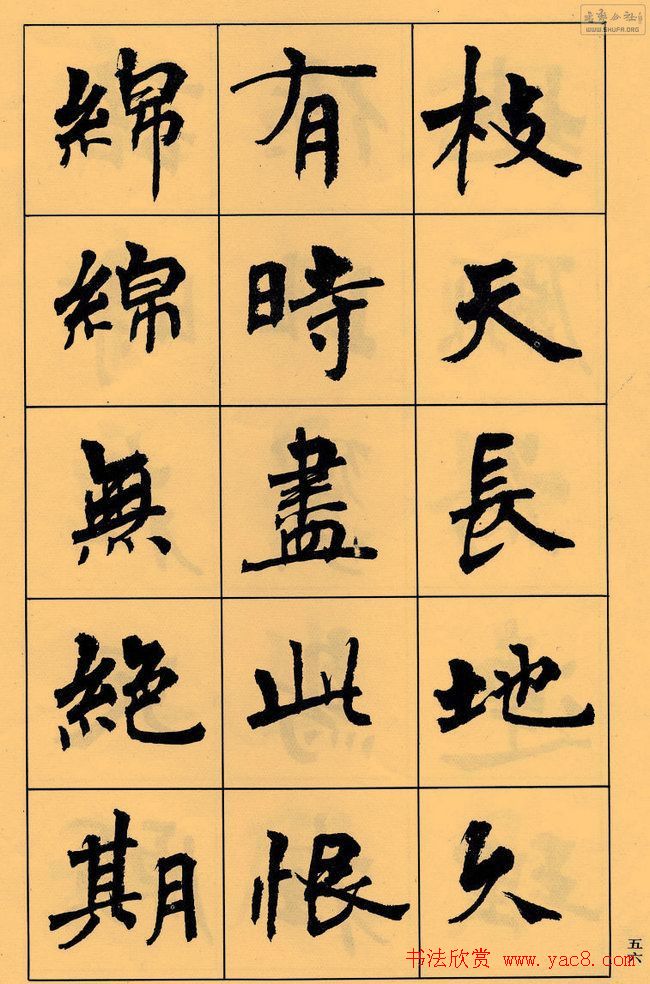 枝天長地久
有時盡此恨
綿綿無絶期
五六
WWW.SHUFA.ORG
书法欣赏 www.yac8.com